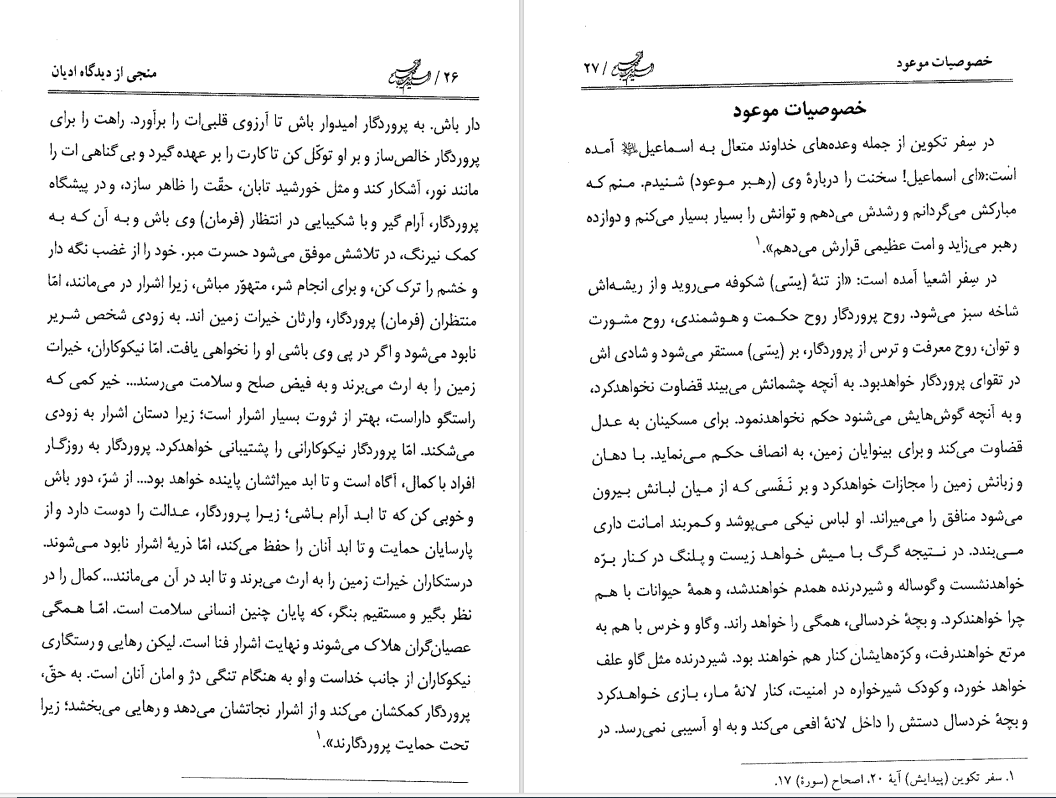 ۲۶ / منجی از دیدگاه ادیان
دار باش. به پروردگار امیدوار باش تا آرزوی قلبی‌ات را برآورد. راهت را برای
پروردگار خالص‌ساز و بر او توکّل کن تا کارت را بر عهده گیرد و بی‌گناهی ات را
مانند نور، آشکار کند و مثل خورشید تابان، حقّت را ظاهر سازد، و در پیشگاه
پروردگار، آرام گیر و با شکیبایی در انتظار (فرمان) وی باش و به آن که به
کمک نیرنگ، در تلاشش موفق می‌شود حسرت مبر. خود را از غضب نگه دار
و خشم را ترک کن، و برای انجام شر، متهوّر مباش، زیرا اشرار در می‌مانند، امّا
منتظران (فرمان) پروردگار، وارثان خیرات زمین اند. به زودی شخص شریر
نابود می‌شود و اگر در پی وی باشی او را نخواهی یافت. امّا نیکوکاران، خیرات
زمین را به ارث می‌برند و به فیض صلح و سلامت می‌رسند... خیر کمی که
راستگو داراست، بهتر از ثروت بسیار اشرار است؛ زیرا دستان اشرار به زودی
می‌شکند. امّا پروردگار نیکوکارانی را پشتیبانی خواهدکرد. پروردگار به روزگار
افراد با کمال، آگاه است و تا ابد میراثشان پاینده خواهد بود... از شرّ، دور باش
و خوبی کن که تا ابد آرام باشی؛ زیرا پروردگار، عدالت را دوست دارد و از
پارسایان حمایت و تا ابد آنان را حفظ می‌کند، امّا ذریهٔ اشرار نابود می‌شوند.
درستکاران خیرات زمین را به ارث می‌برند و تا ابد در آن می‌مانند... کمال را در
نظر بگیر و مستقیم بنگر، که پایان چنین انسانی سلامت است. امّا همگی
عصیان‌گران هلاک می‌شوند و نهایت اشرار فنا است. لیکن رهایی و رستگاری
نیکوکاران از جانب خداست و او به هنگام تنگی دژ و امان آنان است. به حقّ،
پروردگار کمکشان می‌کند و از اشرار نجاتشان می‌دهد و رهایی می‌بخشد؛ زیرا
تحت حمایت پروردگارند».۱
خصوصیات موعود / ۲۷
خصوصیات موعود
در سِفر تکوین از جمله وعده‌های خداوند متعال به اسماعیل آمده
است:«ای اسماعیل! سخنت را دربارهٔ وی (رهبر موعود) شنیدم. منم که
مبارکش می‌گردانم و رشدش می‌دهم و توانش را بسیار بسیار می‌کنم و دوازده
رهبر می‌زاید و امت عظیمی قرارش می‌دهم».۱
در سِفر اشعیا آمده است: «از تنهٔ (یسّی) شکوفه می‌روید و از ریشه‌اش
شاخه سبز می‌شود. روح پروردگار روح حکمت و هوشمندی، روح مشورت
و توان، روح معرفت و ترس از پروردگار، بر (یسّی) مستقر می‌شود و شادی اش
در تقوای پروردگار خواهدبود. به آنچه چشمانش می‌بیند قضاوت نخواهدکرد،
و به آنچه گوش‌هایش می‌شنود حکم نخواهدنمود. برای مسکینان به عدل
قضاوت می‌کند و برای بینوایان زمین، به انصاف حکم می‌نماید. با دهان
و زبانش زمین را مجازات خواهدکرد و بر نَفَسی که از میان لبانش بیرون
می‌شود منافق را می‌میراند. او لباس نیکی می‌پوشد و کمربند امانت داری
می‌بندد. در نتیجه گرگ با میش خواهد زیست و پلنگ در کنار برّه
خواهدنشست و گوساله و شیردرنده همدم خواهندشد، و همهٔ حیوانات با هم
چرا خواهندکرد. و بچهٔ خردسالی، همگی را خواهد راند. و گاو و خرس با هم به
مرتع خواهندرفت، و کرّه‌هایشان کنار هم خواهند بود. شیردرنده مثل گاو علف
خواهد خورد، و کودک شیرخواره در امنیت، کنار لانهٔ مار، بازی خواهدکرد
و بچهٔ خردسال دستش را داخل لانهٔ افعی می‌کند و به او آسیبی نمی‌رسد. در
۱. سفر تکوین (پیدایش) آیهٔ ۲۰، اصحاح (سورهٔ) ۱۷.